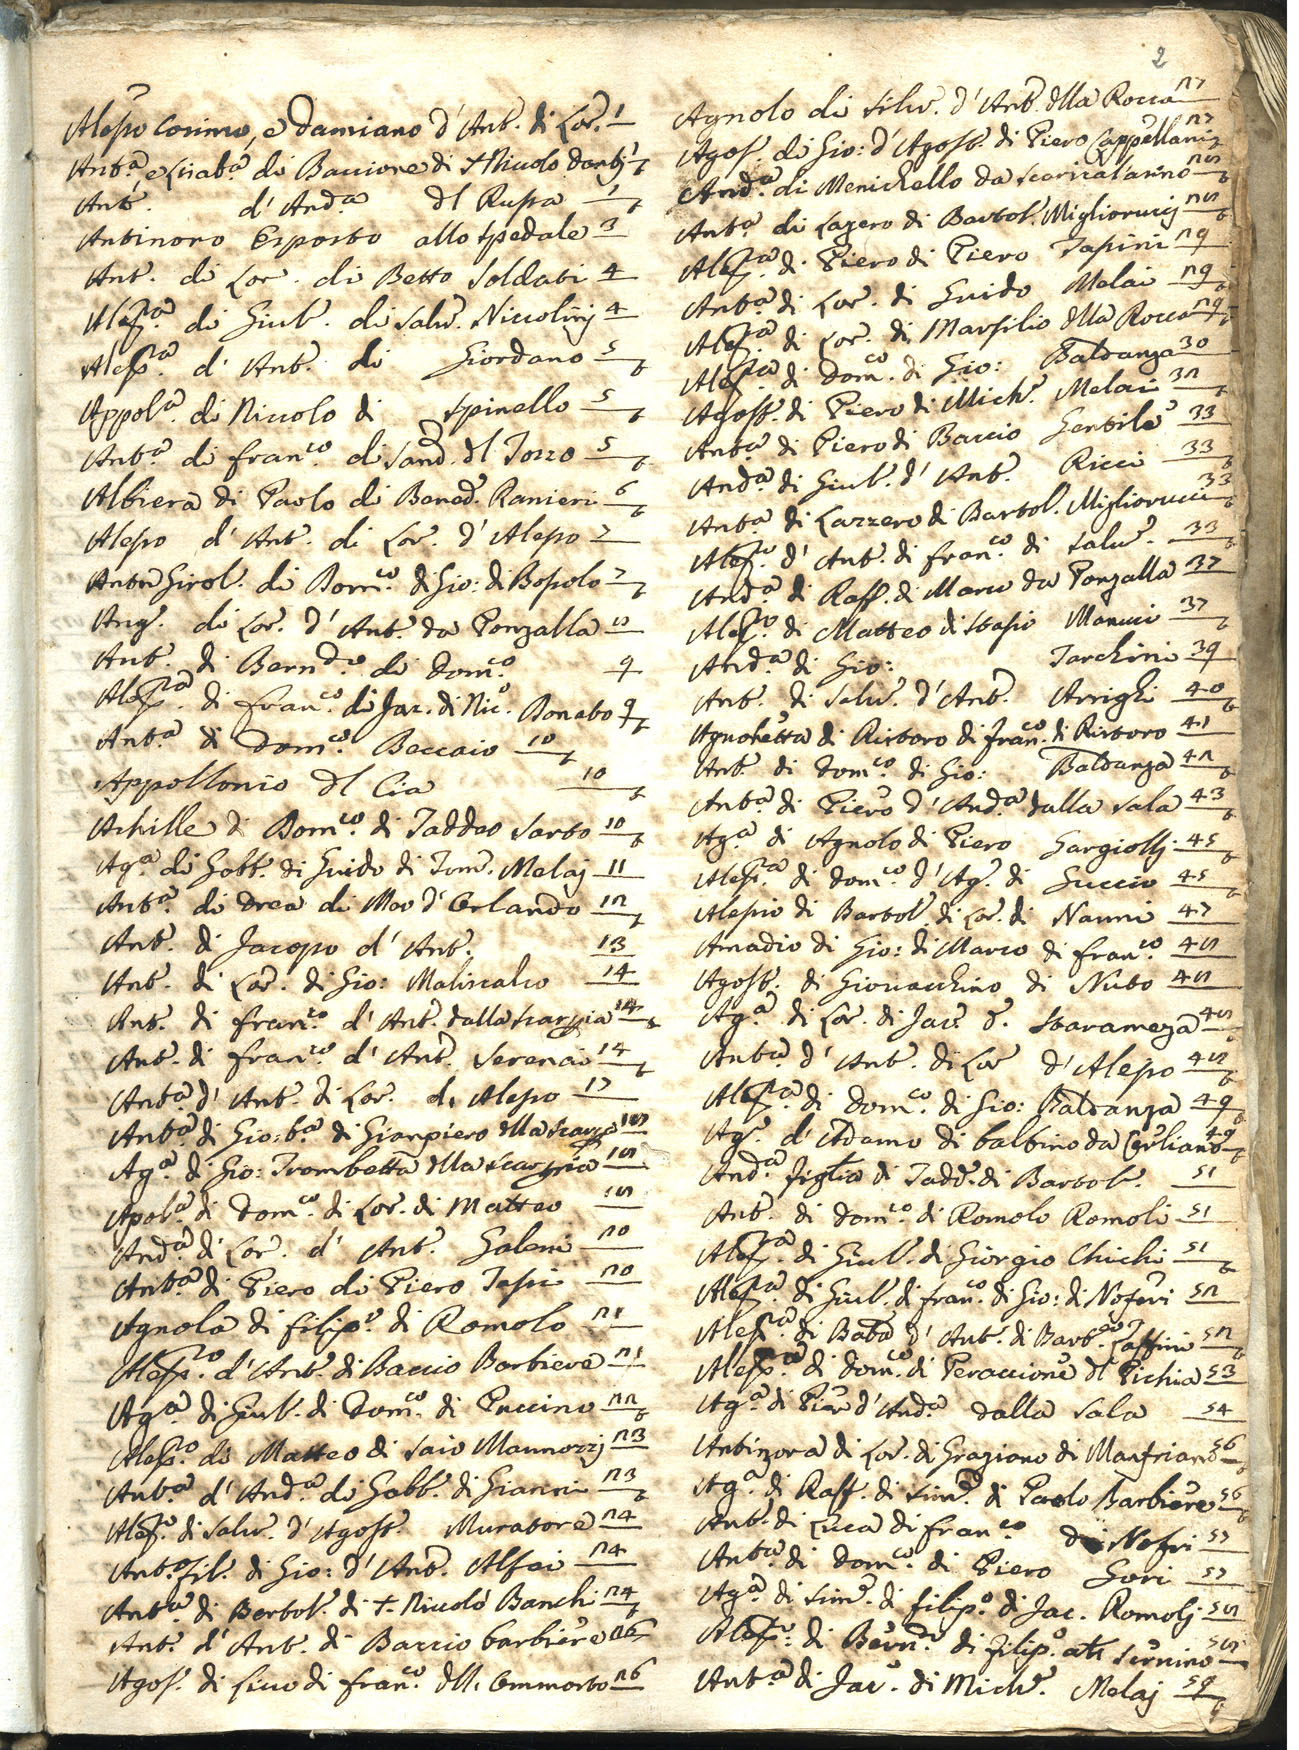 2
Alesso Cosimo, e Damiano d'Ant.º di Lor.º 1
Ant.ª e Lisab.ª di Baccione di
Ant.º d'And.ª dl Rupa 1
Antinoro Esposto allo spedale 3
Ant.º di Lor.º di Betto Soldati 4
Aless.ª di Giul.º di Salv.º Niccolinj 4
Aless.ª d'Ant.º di Giordano 5
Appol.ª di Niccolo di Spinello 5
Ant.ª di Fran.co di Sand.º dl Tozzo 5
Albiera di Paolo di Bened.º Ranieri 6
Alesso d'Ant.º di Lor.º d'Alesso 7
Girol.º di Dom.co di Gio: di Bopolo 7
Ang.º di Lor.º d'Ant.º da Ponzalla
Ant.º di Bern.do di Dom.co 9
Aless.ª di Fran.co di Jac. di Nic.º Bonato 9
Ant.ª di Dom.co Beccaio 10
Appollonio dl Cia 10
Achille di Dom.co di Taddeo Sarto 10
Ag.ª di Gobb.º di Guido di Tom.º Melaj 11
Ant.ª di Drea di Meo d'Orlando 12
Ant.º di Jacopo d'Ant.º 13
Ant.º di Lor.º di Gio: Maliscalco 14
Ant.º di Fran.co d'Ant.º dalla Scarperia 14
Ant.º di Fran.co d'Ant.º Serenai 14
Ant.ª d'Ant.º di Lor.º di Alesso 17
Ant.ª di Gio: b.ª di Gianpiero dlla Scarp.ª 18
Ag.ª di Gio: Trombetta dlla Scarperia 18
Apol.ª di Dom.co di Lor.º di Matteo 18
And.ª di Lor.º d'Ant.º Galeni 20
Ant.ª di Piero di Piero Tasi 20
Agnola di Filip.º di Romolo 21
Aless.º d'Ant.º di Baccio Barbiere 21
Ag.ª di Giul.º di Dom.co di Puccino 22
Aless.º di Matteo di Saio Mannozzj 23
Ant.ª d'And.ª di Gabb.º di Gianni 23
Aless.º di Salv.º d'Agost.º Muratore 24
Ant.º fil.º di Gio: d'Ant.º Alfai 24
Ant.ª di Bartol.º di S. Niccolò Banchi 24
Ant.º d'Ant.º di Baccio barbiere 26
Agos.º di Lica di Fran.co dll' Ommorto 26
Agnolo di Silv.º d'Ant.º dlla Rocca 27
Agos.º di Gio: d'Agost.º di Piero Cappellanj 27
And.ª di Menichello da Scaricalasino 28
Ant.ª di Lazero di Bartol.º Migliorucij 28
Aless.ª di Piero di Piero Tasini 29
Ant.ª di Lor.º di Guido Melai 29
Aless.ª di Lor.º di Marsilio dlla Rocca 29
Aless.ª di Dom.co di Gio: Baldanza 30
Agost.º di Piero di Mich.º Melai 32
Ant.ª di Piero di Baccio Gentile 33
And.ª di Giul.º d'Ant.º Ricci 33
Ant.ª di Lazzero di Bartol.º Migliorucci 33
Aless.º d'Ant.º di Fran.co di Salv.º 33
And.ª di Raff.º di Marco da Ponzalla 37
Aless.º di Matteo di Stasio Manuci 37
And.ª di Gio: Tarchini 39
Ant.º di Salv.º d'Ant.º Arrighi 40
Agnoletta di Ristoro di Fran.co di Ristoro 41
Ant.º di Dom.co di Gio: Baldanza 42
Ant.ª di Piero d'And.ª dalla Sala 43
Ag.ª di Agnolo di Piero Gargiollj 45
Aless.ª di Dom.co d'Ag.º di Guccio 45
Alessio di Bartol.º di Lor.º di Nanni 47
Amadio di Gio: di Marco di Fran.co 48
Agost.º di Giovacchino di Nuto 48
Ag.ª di Lor.º di Jac.º d. Staramezza 48
Ant.ª d'Ant.º di Lor.º d'Alesso 48
Aless.ª di Dom.co di Gio: Baldanza 49
Ag.º d'Adamo di balbino da Cerliano 49
And.ª figlia di Tadd.º di Bartol.º 51
Ant.º di Dom.co di Romolo Romoli 51
Aless.ª di Giul.º di Giorgio Chichi 51
Aless.ª di Giul.º di Fran.co di Gio: di Noferi 52
Aless.ª di Bab.ª d'Ant.º di Bart.co Zaffini 52
Aless.ª di Dom.co di Peraccione dl Pichia 53
Ag.ª di Piero d'And.ª dalla Sala 54
Antinora di Lor.º di Graziano di Manfriano 56
Ag.ª di Raff.º di Sim.º di Paolo Barbiere 56
Ant.º di Luca di Fran.co di Nofri 57
Ant.ª di Dom.co di Piero Gori 57
Ag.ª di Sim.º di Filip.º di Jac. Romolj 58
Aless.º di Bern.º di Filip.º Sernino 58
Ant.ª di Jac.º di Mich.º Melaj 59